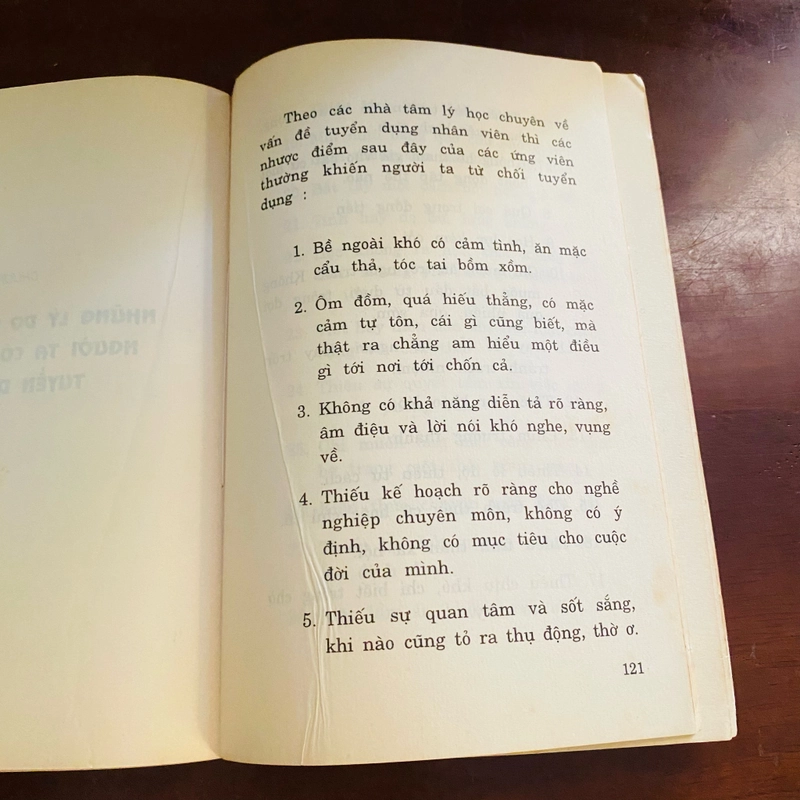 Theo các nhà tâm lý học chuyên về
vấn đề tuyển dụng nhân viên thì các
nhược điểm sau đây của các ứng viên
thường khiến người ta từ chối tuyển
dụng :
1. Bề ngoài khó có cảm tình, ăn mặc
cẩu thả, tóc tai bồm xồm.
2. Ôm đồm, quá hiếu thắng, có mặc
cảm tự tôn, cái gì cũng biết, mà
thật ra chẳng am hiểu một điều
gì tới nơi tới chốn cả.
3. Không có khả năng diễn tả rõ ràng,
âm điệu và lời nói khó nghe, vụng
về.
4. Thiếu kế hoạch rõ ràng cho nghề
nghiệp chuyên môn, không có ý
định, không có mục tiêu cho cuộc
đời của mình.
5. Thiếu sự quan tâm và sốt sắng,
khi nào cũng tỏ ra thụ động, thờ ơ.
121